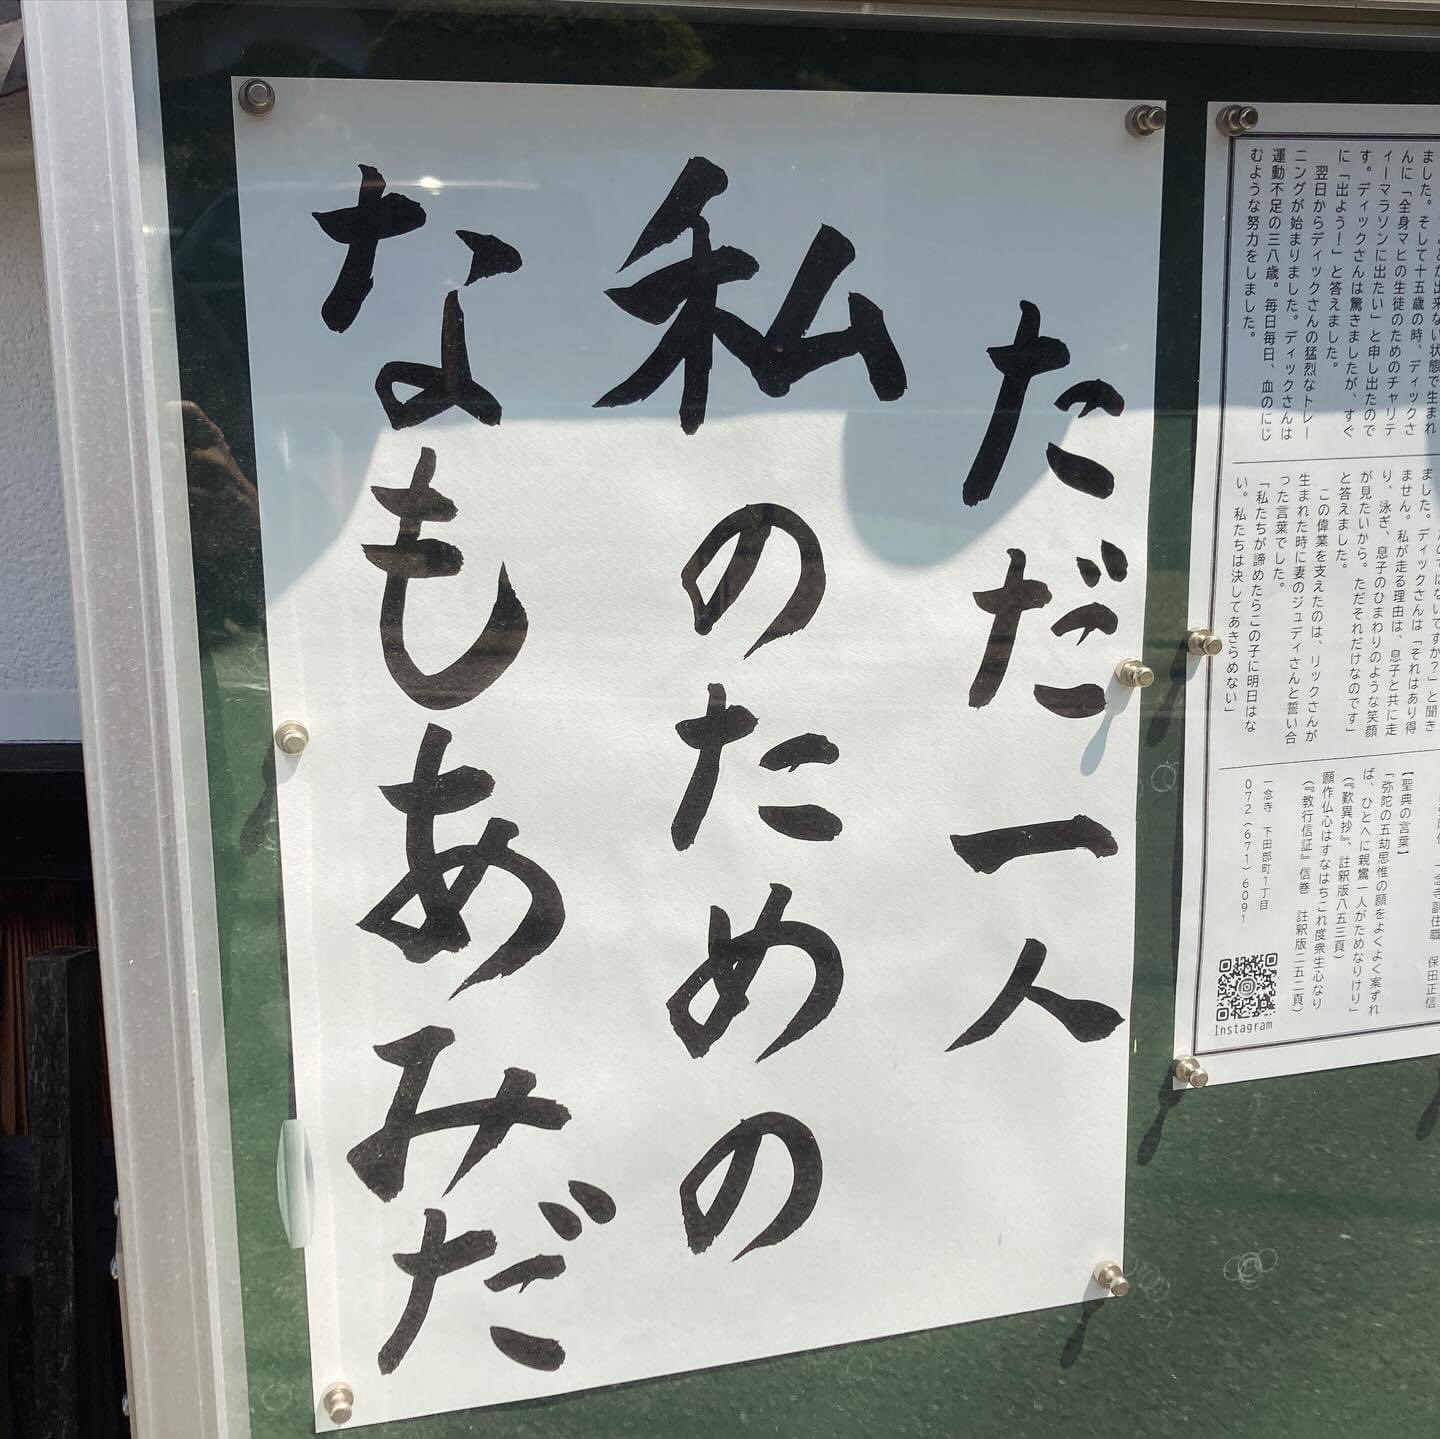 ただ一人
私のための
なもあみだ
ました。そして十五歳の時、ディックさ
んに「全身マヒの生徒のためのチャリテ
ィーマラソンに出たい」と申し出たので
す。ディックさんは驚きましたが、すぐ
に「出よう！」と答えました。
翌日からディックさんの猛烈なトレー
ニングが始まりました。ディックさんは
運動不足の三八歳。毎日毎日、血のにじ
むような努力をしました。
ました。ディックさんは「それはあり得
ません。私が走る理由は、息子と共に走
り、泳ぎ、息子のひまわりのような笑顔
が見たいから。ただそれだけなのです」
と答えました。
この偉業を支えたのは、リックさんが
生まれた時に妻のジュディさんと誓い合
った言葉でした。
「私たちが諦めたらこの子に明日はな
い。私たちは決してあきらめない」
一念寺副住職 保田正信
【聖典の言葉】
「弥陀の五劫思惟の願をよくよく案ずれ
ば、ひとへに親鸞一人がためなりけり」
（『歎異抄』、註釈版八五三頁）
願作仏心はすなはちこれ度衆生心なり
（『教行信証』信巻 註釈版二五二頁）
一念寺 下田部町1丁目
072（671）6091
Instagram